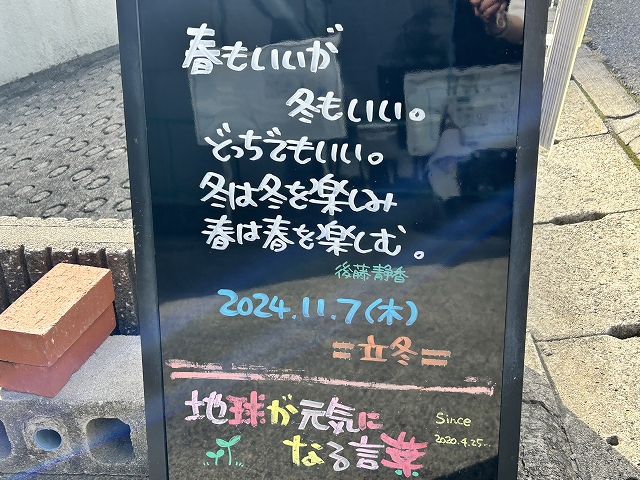 春もいいが
冬もいい。
どっちでもいい。
冬は冬を楽しみ
春は春を楽しむ。
後藤静香
2024.11.7(木)
=立冬=
地球が元気に
なる言葉
Since
2020.4.25...